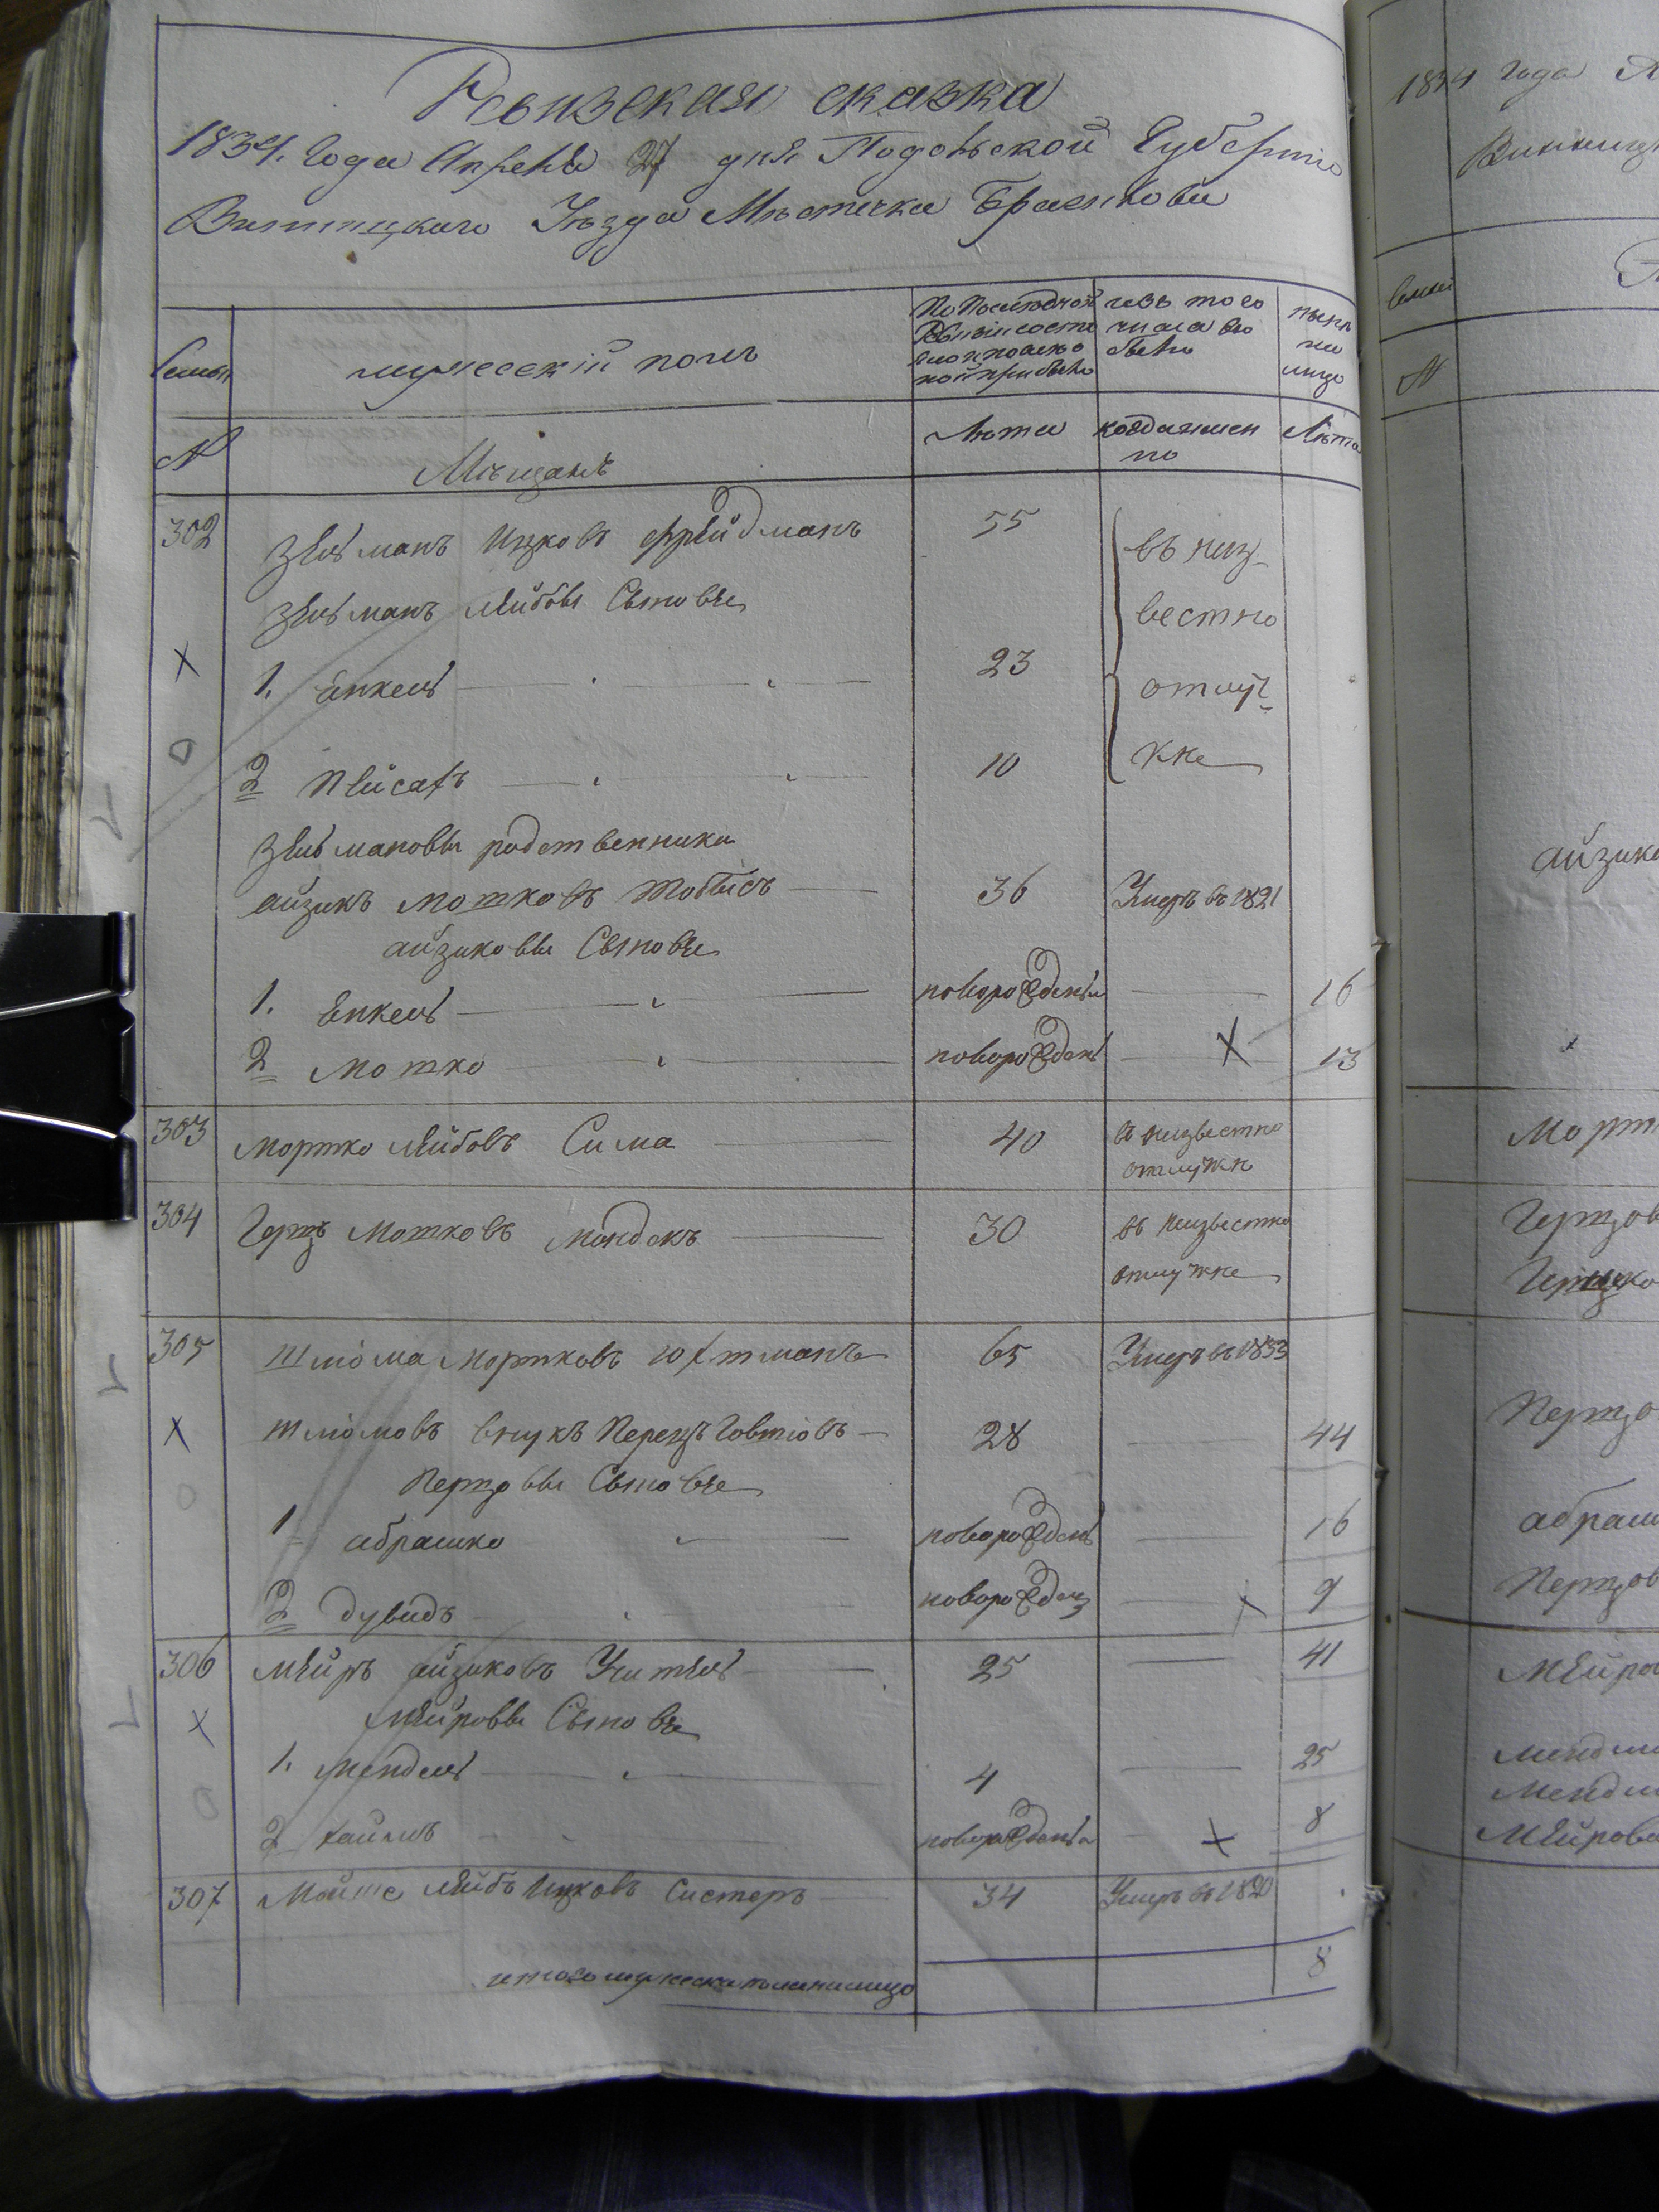 Ревизская сказка
1834. Года Апреля 27 дня Подольской Губерніи
Винницкаго Уезда Мѣстечка Браилова
Семьи
мужескій полъ
По Последной Ревизіи состояло и после оной прибыло
изъ того числа выбыло
ныне на лицо
№
Мѣщанѣ
Лѣта
когда именно
Лѣта
302 Зельманъ Ицковъ Фрейдманъ 55
въ неиз-
Зельманъ Лейбовы Сыновье
вестно
1. Енкель 23
отлуч-
2 Пейсахъ 10
кке
Зельмановы родственники
Айзикъ Мотковъ Тобысъ 36 Умеръ въ 1821
Айзиковы Сыновье
1. Енкель новорожденъ 16
2 Мотко новорожденъ 13
303 Мортко Лейбовъ Сима 40 въ неизвестно
отлучкѣ
304 Герцъ Мотковъ Мондекъ 30 въ неизвестно
отлучке
305 Шліома Мортковъ Юхтманъ 65 Умеръ въ 1833
Шліомовъ внукъ Перецъ Говшіовъ 28 44
Перцовы Сыновье
1 Абрашко новорожденъ 16
2 Дувидъ новорожден 9
306 Мейръ Айзиковъ Учитель 25 41
Мейровы Сыновье
1. Мендель 4 25
2 Хаимъ новорожденъ 8
307 Мойше Лейбъ Ицковъ Систеръ 34 Умеръ въ 1820
итого мужеска пола на лицо 8
1834 года
Винниц
Семьи
№
Айзико
Морт
Герцов
Герцко
Перцо
Абраш
Перцов
Мейро
Мендел
Мендел
Мейров